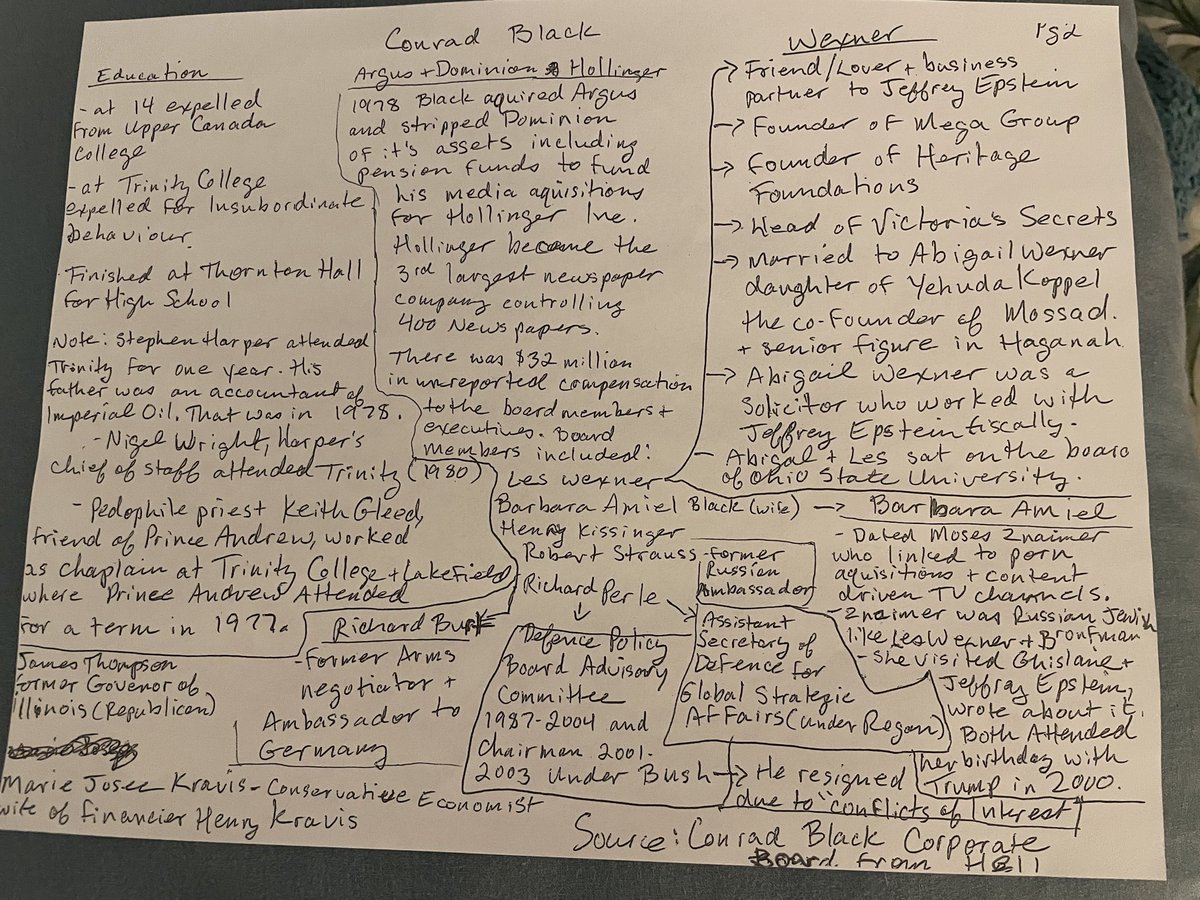 Conrad Black
pg2
Education
- at 14 expelled
from Upper Canada
College
- at Trinity College
expelled for Insubordinate
behaviour.
Finished at Thornton Hall
for High School
Note: Stephen Harper attended
Trinity for one year. His
father was an accountant of
Imperial Oil. That was in 1978.
- Nigel Wright, Harper's
chief of staff attended Trinity (1980)
- Pedophile priest Keith Gleed,
friend of Prince Andrew, worked
as chaplain at Trinity College + Lakefield
where Prince Andrew Attended
for a term in 1977.
Argus + Dominion Hollinger
1978 Black aquired Argus
and stripped Dominion
of it's assets including
pension funds to fund
his media aquisitions
for Hollinger Inc.
Hollinger became the
3rd largest newspaper
company controlling
400 Newspapers.
There was $32 million
in unreported compensation
to the board members +
executives. Board
members included:
Les Wexner
Barbara Amiel Black (wife) →
Henry Kissinger
Robert Strauss - former
Russian
Ambassador
Richard Perle
Defence Policy
Board Advisory
Committee
1987-2004 and
Chairman 2001-
2003 Under Bush → He resigned
due to "conflicts of Interest"
Assistant
Secretary of
Defence for
Global Strategic
Affairs (under Regan)
Richard Burt
- Former Arms
negotiator +
Ambassador to
Germany
James Thompson
former Govenor of
Illinois (Republican)
Marie Josee Kravis - Conservative Economist
wife of financier Henry Kravis
Wexner
→ Friend/Lover + business
partner to Jeffrey Epstein
→ Founder of Mega Group
→ Founder of Heritage
Foundations
→ Head of Victoria's Secrets
→ Married to Abigail Wexner
daughter of Yehuda Koppel
the co-founder of Mossad.
+ senior figure in Haganah
→ Abigail Wexner was a
Solicitor who worked with
Jeffrey Epstein fiscally.
- Abigal + Les sat on the board
of Ohio State University.
Barbara Amiel
- Dated Moses Znaimer
who linked to porn
aquisitions + content
driven TV channels.
- Znaimer was Russian Jewish
like Les Wexner + Bronfman
- She visited Ghislaine +
Jeffrey Epstein,
wrote about it.
Both Attended
her birthday with
Trump in 2000.
Source: Conrad Black Corporate
Board from Hell